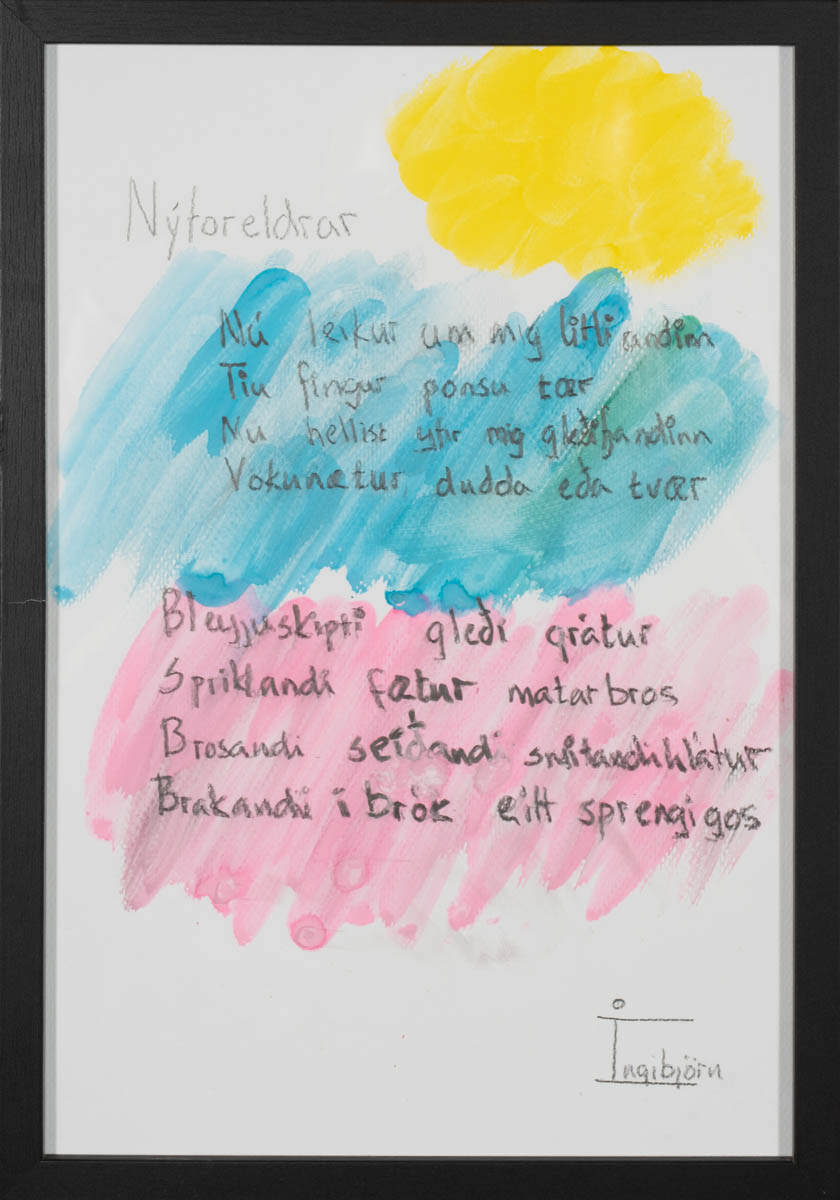 Nýforeldrar
Nú leikur um mig litli andinn
Tíu fingur ponsu tær
Nú hellist yfir mig gleðifjandinn
Vökunætur dudda eða tvær
Bleyjuskipti gleði grátur
Spriklandi fætur matarbros
Brosandi seiðandi smitandi hlátur
Brakandi í brók eitt sprengigos
Ingibjörn